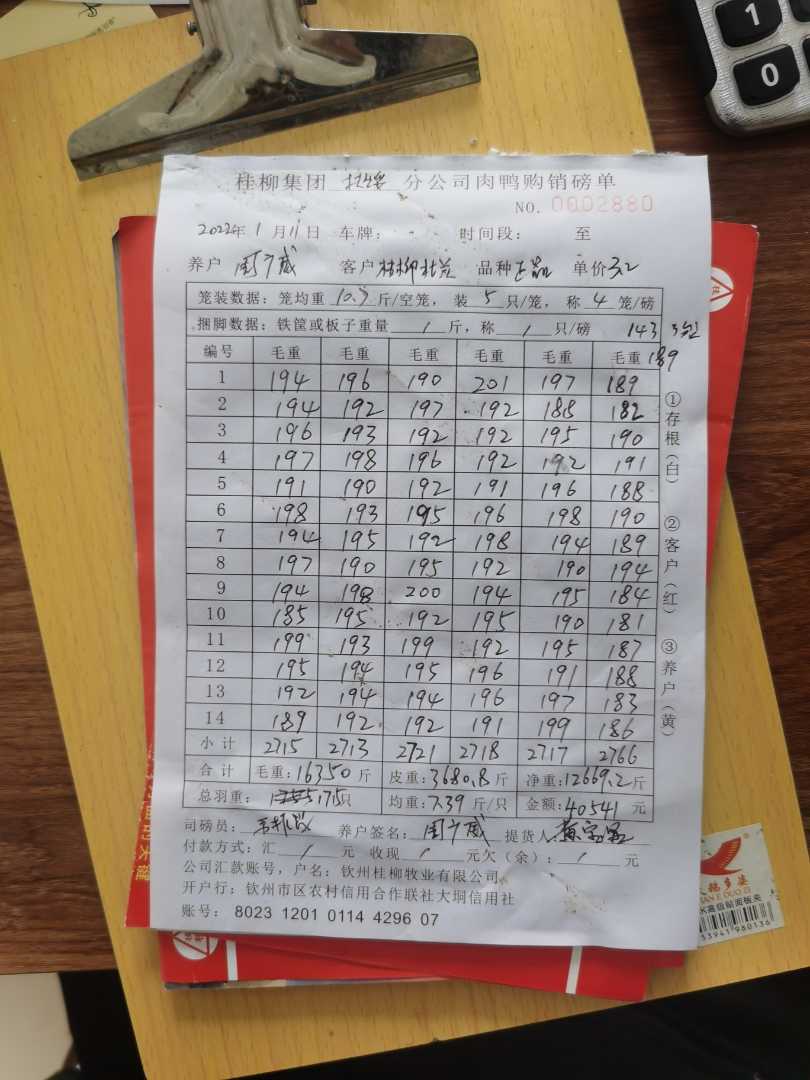 1
0
桂柳集团 分公司肉鸭购销磅单
NO. 0002880
2022年1月11日 车牌: 时间段: 至
养户 周广威 客户 桂柳 品种 正品 单价 3.2
笼装数据: 笼均重 10.7 斤/空笼, 装 5 只/笼, 称 4 笼/磅
捆脚数据: 铁筐或板子重量 / 斤, 称 / 只/磅 143
编号 毛重 毛重 毛重 毛重 毛重 毛重 189
1 194 196 190 201 197 189
2 194 192 197 192 188 182
3 196 193 192 192 195 190
4 197 198 196 192 192 191
5 191 190 192 191 196 188
6 198 193 195 196 198 190
7 194 195 192 198 194 189
8 197 190 195 192 190 194
9 194 198 200 194 195 184
10 185 195 192 195 190 181
11 199 193 199 192 195 187
12 195 194 195 196 191 188
13 192 194 194 196 197 183
14 189 192 192 191 199 186
小计 2715 2713 2721 2718 2717 2766
合计 毛重: 16350 斤 皮重: 3680.8 斤 净重: 12669.2 斤
总羽重: 5175只 均重: 7.39 斤/只 金额: 40541 元
司磅员: 养户签名: 周广威 提货人:
付款方式: 汇 / 元 收现 / 元欠(余): / 元
公司汇款账号, 户名: 钦州桂柳牧业有限公司
开户行: 钦州市区农村信用合作联社大垌信用社
账号: 8023 1201 0114 4296 07
①存根(白) ②客户(红) ③养户(黄)